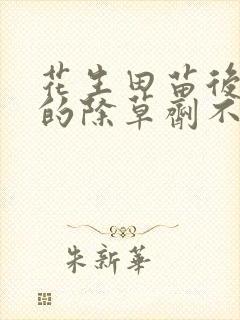 花生田苗後
的除草劑不
朱新華